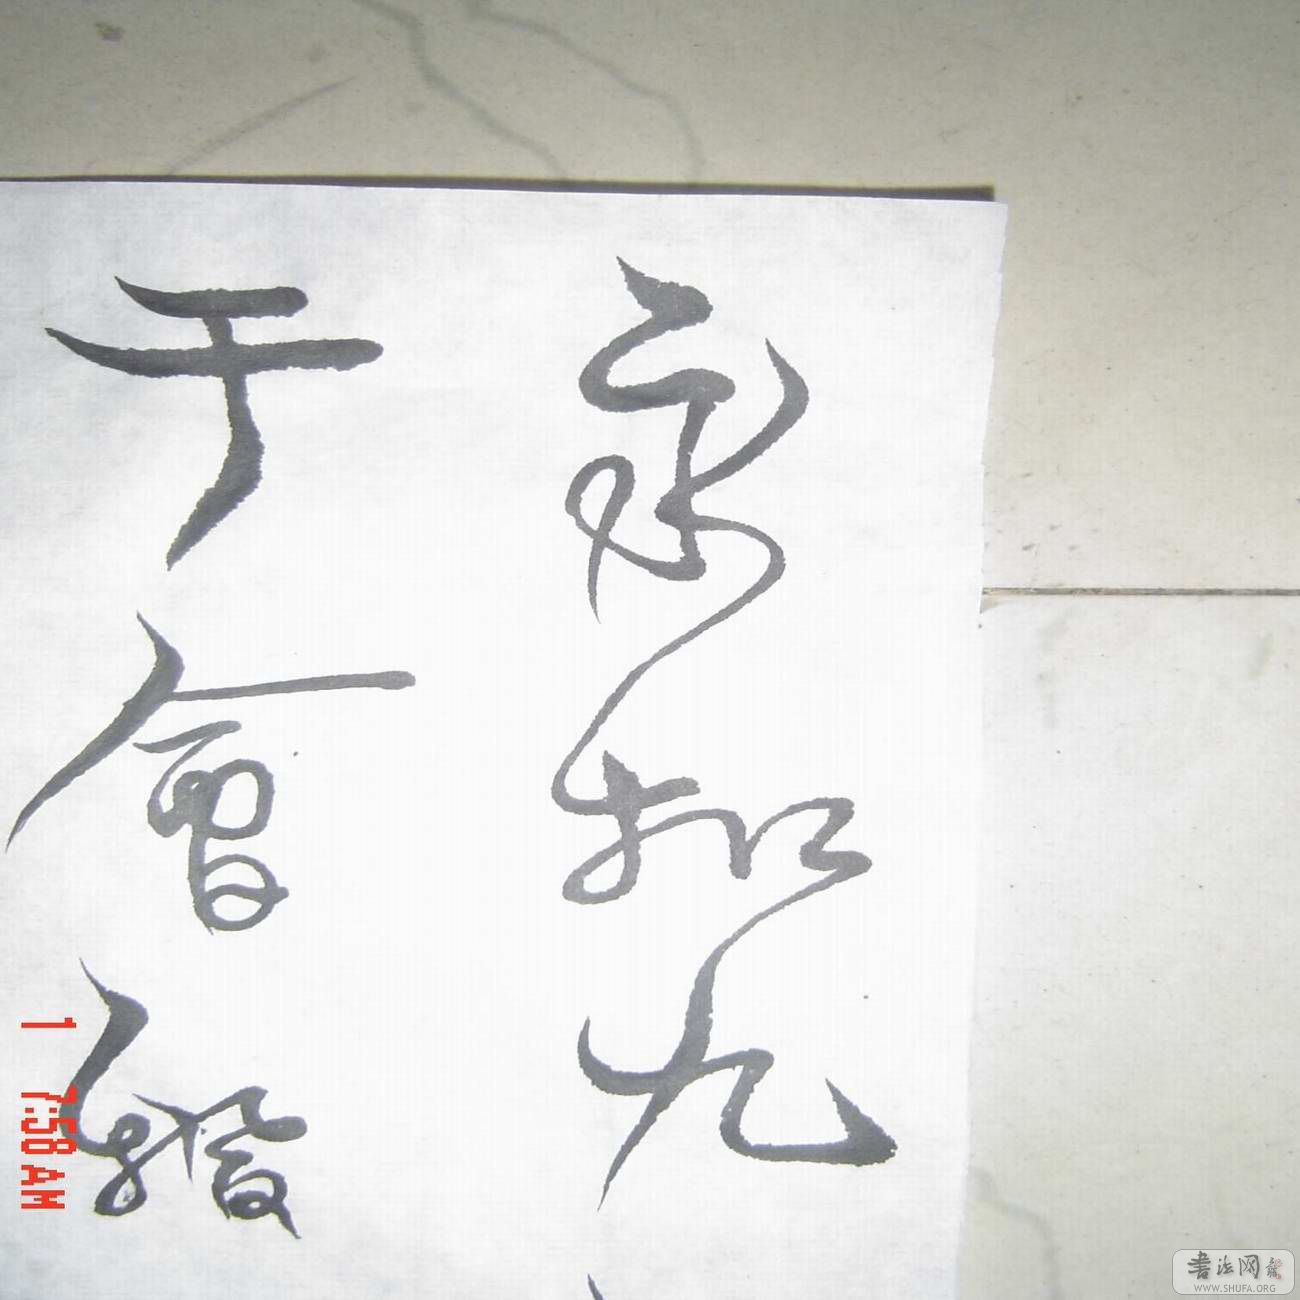 永和九
于會稽
1
7:58 AM
書法网
WWW.SHUFA.ORG